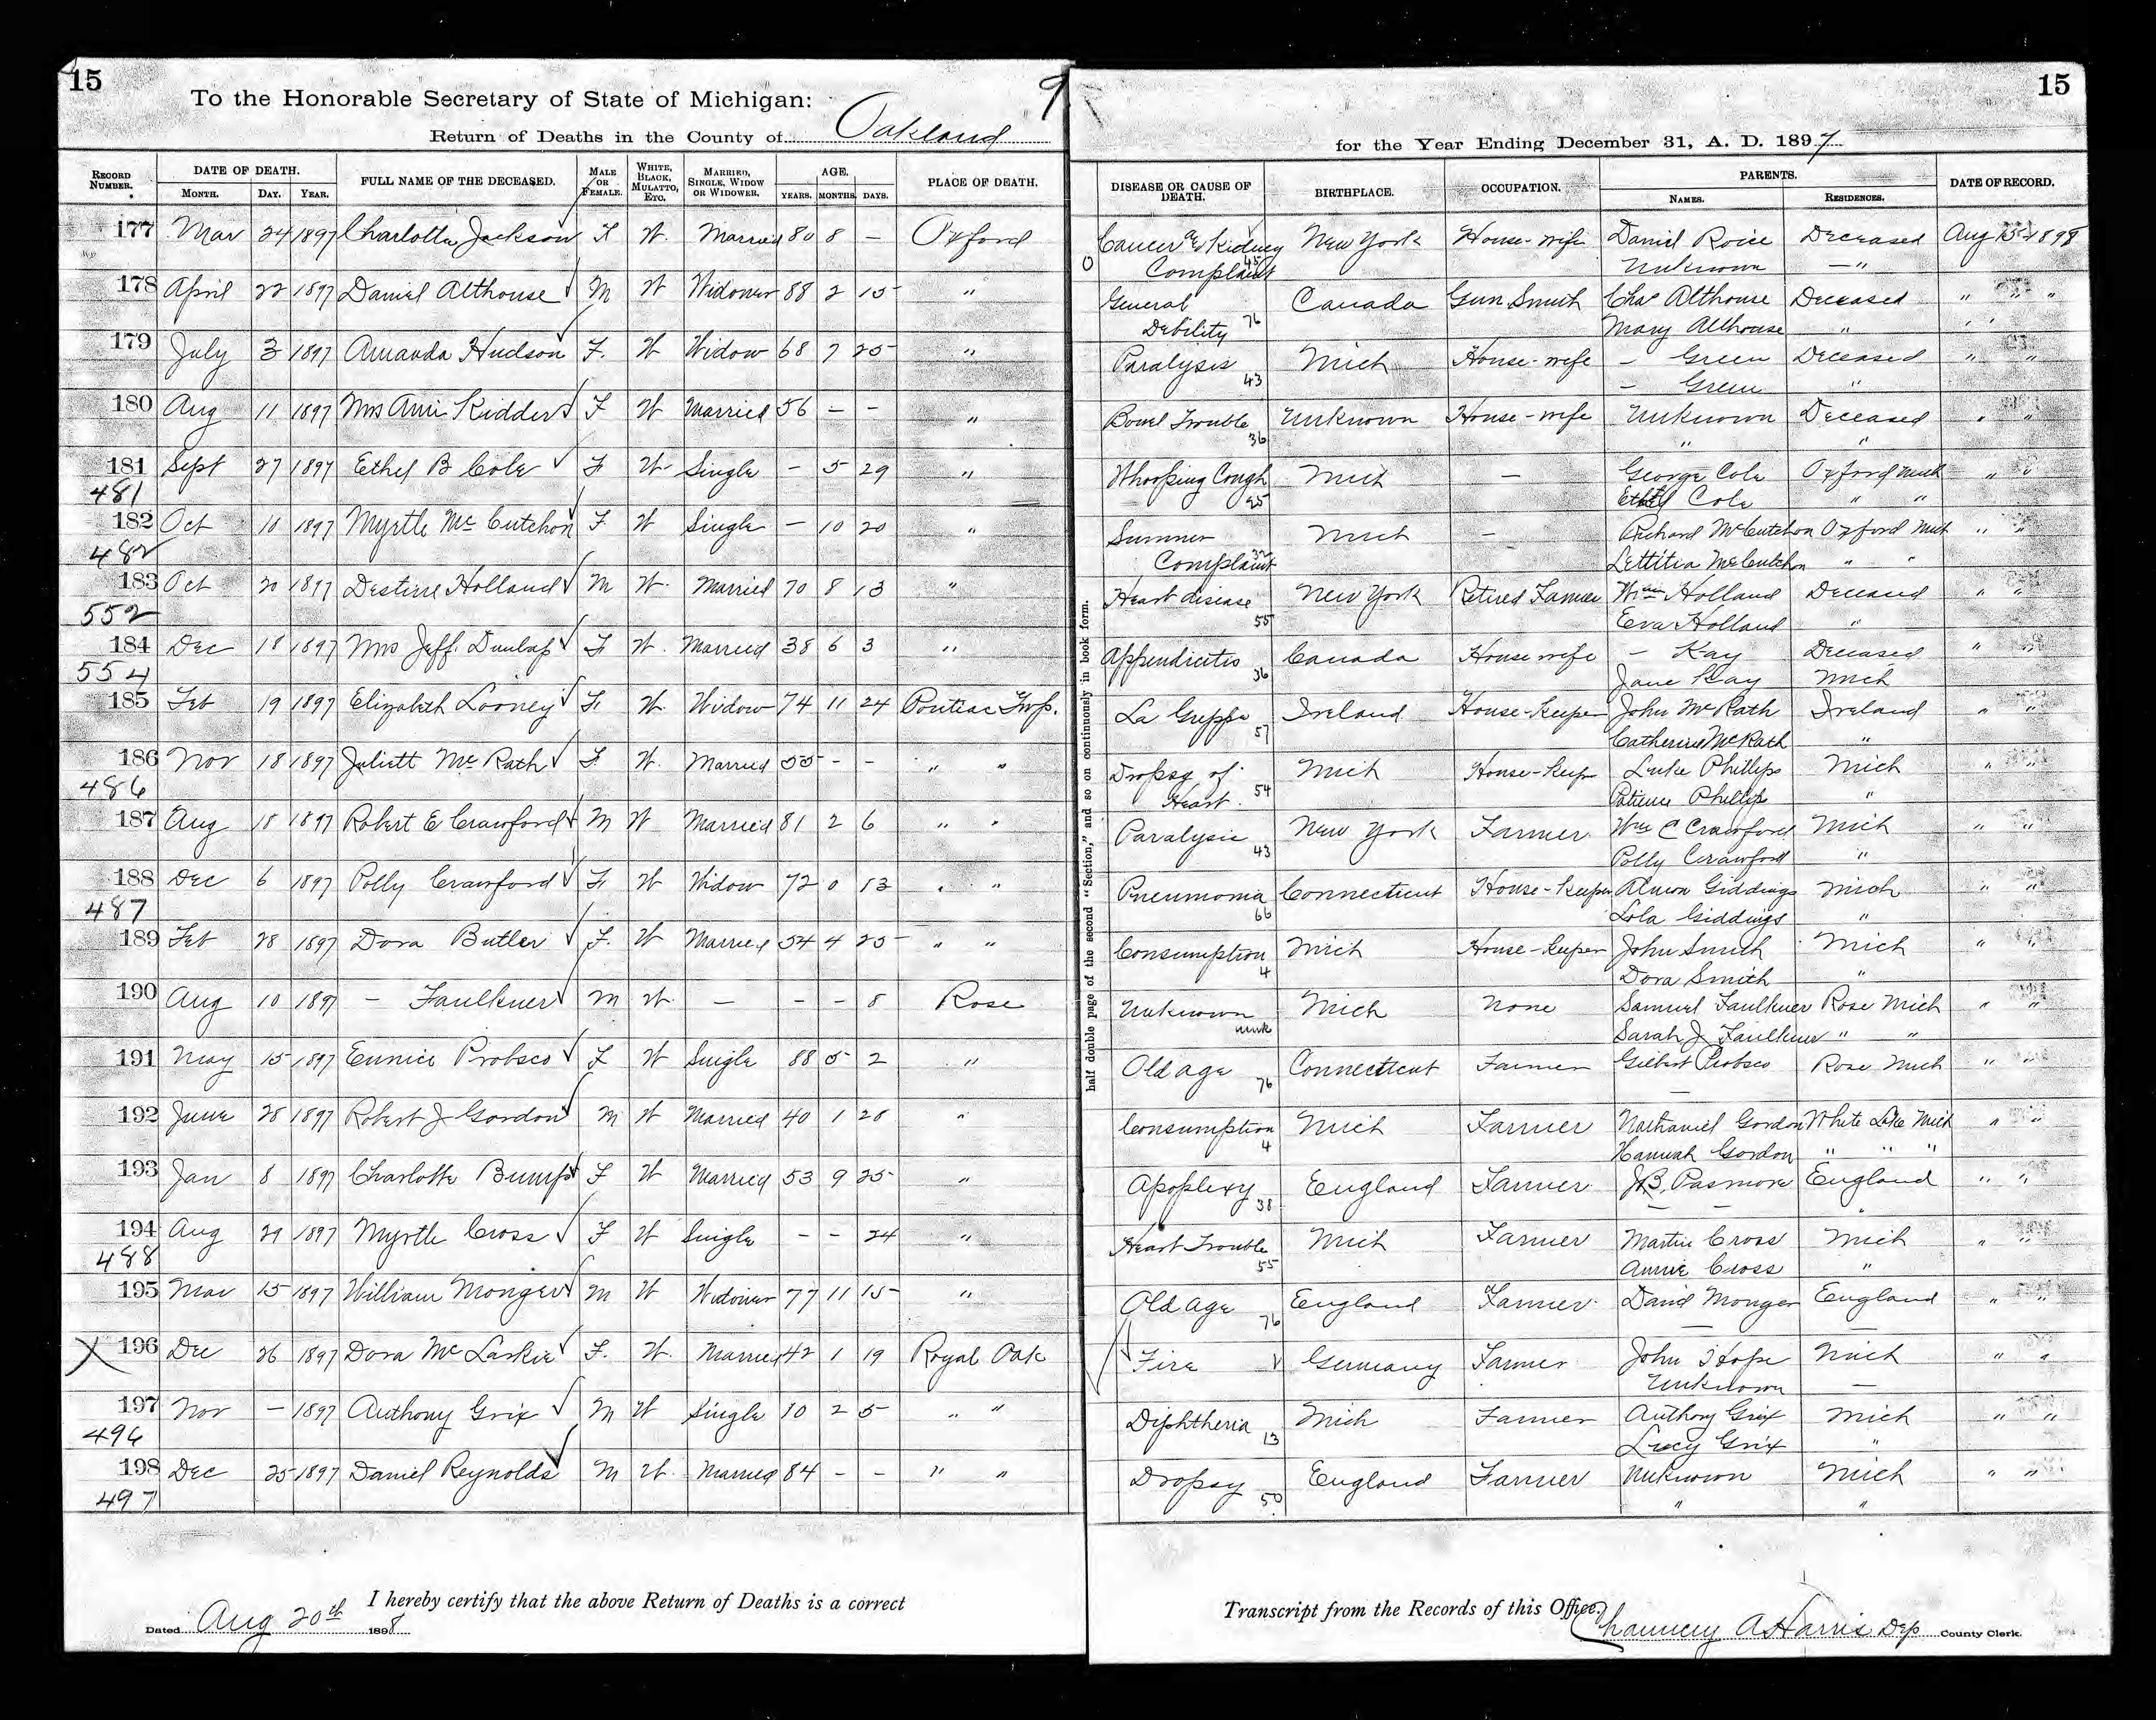 15
To the Honorable Secretary of State of Michigan:
Return of Deaths in the County of Oakland
RECORD NUMBER. DATE OF DEATH. MONTH. DAY. YEAR. FULL NAME OF THE DECEASED. MALE OR FEMALE. WHITE, BLACK, MULATTO, ETC. MARRIED, SINGLE, WIDOW OR WIDOWER. AGE. YEARS. MONTHS. DAYS. PLACE OF DEATH.
177 Mar 24 1897 Charlotte Jackson F W. Married 80 8 — Oxford
178 April 22 1897 Daniel Althouse M W Widower 88 2 15 "
179 July 3 1897 Amanda Hudson F. W Widow 68 7 25 "
180 Aug 11 1897 Mrs Ann Kidder F W Married 56 — — "
181 Sept 27 1897 Ethel B Cole F W Single — 5 29 "
481
182 Oct 10 1897 Myrtle Mc Cutchon F W Single — 10 20 "
482
183 Oct 20 1897 Holland M W. Married 70 8 13 "
552
184 Dec 18 1897 Mrs Jeff. Dunlap F W. Married 38 6 3 "
554
185 Feb 19 1897 Elizabeth Looney F W. Widow 74 11 24 Pontiac Twp.
186 Nov 18 1897 Juliett Mc Rath F. W. Married 55 - - " "
486
187 Aug 18 1897 Robert E Crawford M W Married 81 2 6 " "
188 Dec 6 1897 Polly Crawford F W Widow 72 0 13 " "
487
189 Feb 28 1897 Dora Butler F. W Married 54 4 25 " "
190 Aug 10 1897 — Faulkner M W. — - - 8 Rose
191 May 15 1897 Eunice Probsco F W Single 88 5 2 "
192 June 28 1897 Robert J Gordon M W Married 40 1 28 "
193 Jan 8 1897 Charlotte Bump F W Married 53 9 25 "
194 Aug 29 1897 Myrtle Cross F W Single - - 24 "
488
195 Mar 15 1897 William Monger M W Widower 77 11 15 "
X 196 Dec 26 1897 Dora Mc Laskie F. W. Married 42 1 19 Royal Oak
197 Nov — 1897 Anthony Grix M W Single 10 2 5 " "
496
198 Dec 25 1897 Daniel Reynolds M W. Married 84 - - " "
497
I hereby certify that the above Return of Deaths is a correct
Dated Aug 20th 1898
15
for the Year Ending December 31, A. D. 1897
DISEASE OR CAUSE OF DEATH. BIRTHPLACE. OCCUPATION. PARENTS. NAMES. RESIDENCES. DATE OF RECORD.
Cancer & Kidney New York House-wife Daniel Roice Deceased Aug 15 1898
Complaint 45 Unknown — "
General Canada Gun Smith Chas Althouse Deceased " " "
Debility 76 Mary Althouse " " "
Paralysis Mich House-wife — Green Deceased " "
43 — Green "
Bowel Trouble Unknown House-wife Unknown Deceased " "
36 " "
Whooping Cough Mich — George Cole Oxford Mich " "
Ethel Cole " "
Summer Mich — Richard McCutchon Oxford Mich " "
Complaint Lettitia McCutchon " "
Heart disease New York Retired Farmer Wm Holland Deceased " "
55 Eva Holland "
Appendicitis Canada House wife — Kay Deceased " "
36 Jane Kay Mich
La Grippe Ireland House-Keeper John McRath Ireland " "
57 Catherine McRath "
Dropsy of Mich House-Keep Luke Phillips Mich " "
Heart. 54 Patience Phillips "
Paralysis New York Farmer Wm C Crawford Mich " "
43 Polly Crawford "
Pneumonia Connecticut House-Keeper Almon Giddings Mich " "
66 Lola Giddings "
Consumption Mich House-Keeper John Smith Mich " "
4 Dora Smith "
Unknown Mich None Samuel Faulkner Rose Mich " "
unk Sarah J Faulkner " "
Old age Connecticut Farmer Gilbert Probsco Rose Mich " "
76 —
Consumption Mich Farmer Nathaniel Gordon White Lake Mich " "
4 Hannah Gordon " " "
Apoplexy England Farmer J.B. Pasmore England " "
38 — — "
Heart Trouble Mich Farmer Martin Cross Mich " "
55 Annie Cross "
Old age England Farmer David Monger England " "
76 — —
Fire Germany Farmer John Hope Mich " "
Unknown —
Diphtheria Mich Farmer Anthony Grix Mich " "
13 Lucy Grix "
Dropsy England Farmer Unknown Mich " "
50 " "
half double page of the second "Section," and so on continuously in book form.
Transcript from the Records of this Office.
Chauncey A Harris Dep County Clerk.